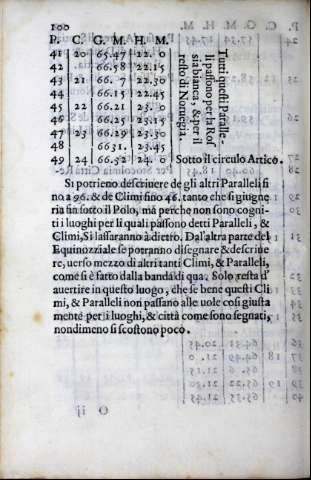 100
P. C. G. M. H. M.
41 20 65.47 22. 0
42 66.58 22.15
43 21 66. 7 22.30
44 66.15 22.45
45 22 66.21 23. 0
46 66.25 23.15
47 23 66.29 23.30
48 6631. 23.45
49 24 66.32 24. 0 Sotto il circulo Artico.
Tutti questi Paralle-
li passono per la Ros
sia bianca, & per il
resto di Noruegia.
Si potrieno descriuere de gli altri Paralleli si
no a 96. & de Climi sino 46. tanto che si giugne
ria sin sotto il Polo, mà perche non sono cogni-
ti i luoghi per li quali passono detti Paralleli, &
Climi, Si lassaranno à dietro. Dal'altra parte del
Equinozziale se potranno disegnare & descriue
re, uerso mezzo di altri tanti Climi, & Paralleli,
come si è fatto dalla banda di qua. Solo resta d'
auertire in questo luogo, che se bene questi Cli
mi, & Paralleli non passano alle uole cosi giusta
mente per li luoghi, & città come sono segnati,
nondimeno si scostono poco.